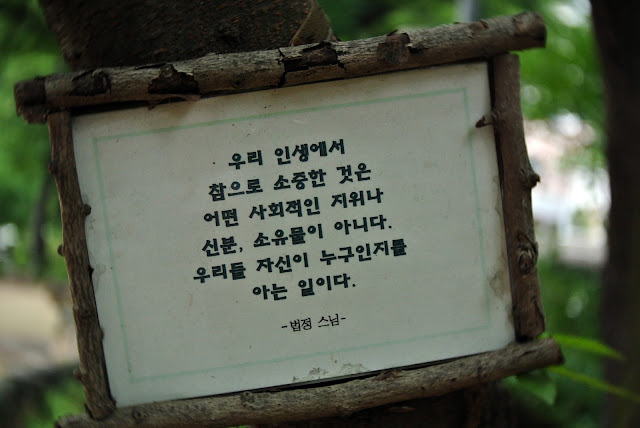 우리 인생에서
참으로 소중한 것은
어떤 사회적인 지위나
신분, 소유물이 아니다.
우리들 자신이 누구인지를
아는 일이다.
-법정 스님-